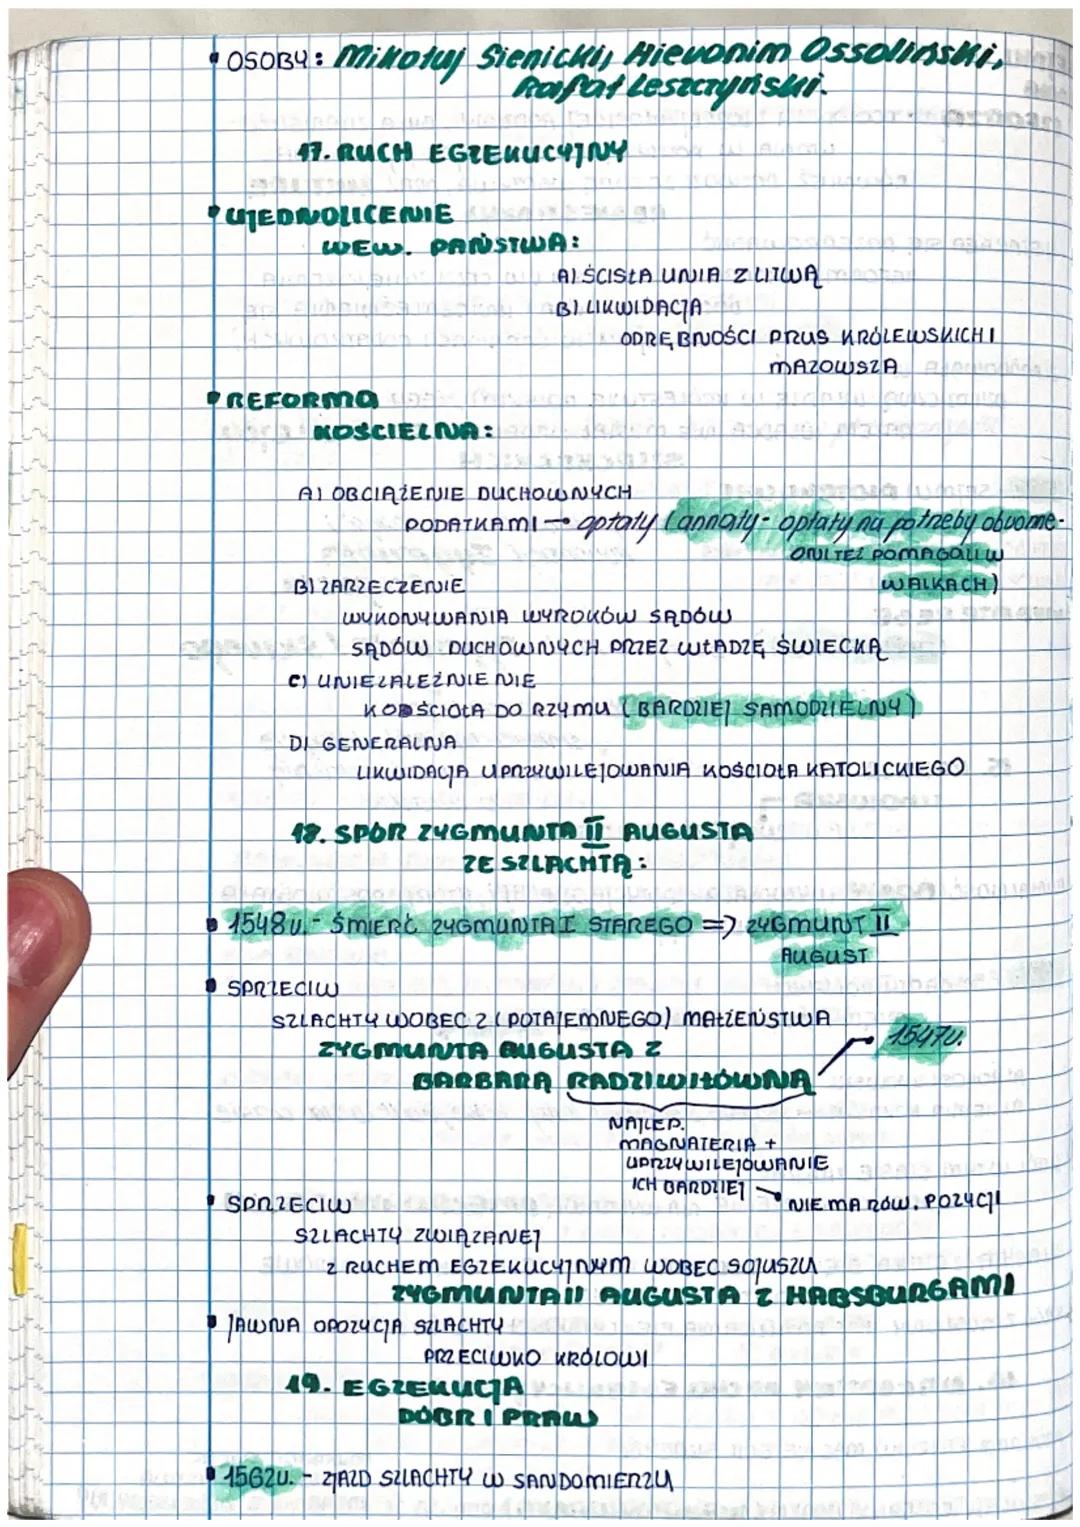 • OSOBY: Mikołaj Sienicki, Hieronim Ossoliński,
Rafał Leszczyński.
17. RUCH EGZEKUCYJNY
• UJEDNOLICENIE
WEW. PAŃSTWA:
A) ŚCISŁA UNIA Z LITWĄ
B) LIKWIDACJA
ODRĘBNOŚCI PRUS KRÓLEWSKICH I
MAZOWSZA
• REFORMA
KOŚCIELNA:
A) OBCIĄŻENIE DUCHOWNYCH
PODATKAMI → opłaty (annaty - opłaty na potrzeby obronne -
ONI TEŻ POMAGALI W
WALKACH)
B) ZARZECZENIE
WYKONYWANIA WYROKÓW SĄDÓW
SĄDÓW DUCHOWNYCH PRZEZ WŁADZĘ ŚWIECKĄ
C) UNIEZALEŻNIE NIE
KOŚCIOŁA DO RZYMU (BARDZIEJ SAMODZIELNY)
D) GENERALNA
LIKWIDACJA UPRZYWILEJOWANIA KOŚCIOŁA KATOLICKIEGO
18. SPÓR ZYGMUNTA II AUGUSTA
ZE SZLACHTĄ:
• 1548r. - ŚMIERĆ ZYGMUNTA I STAREGO => ZYGMUNT II
AUGUST
• SPRZECIW
SZLACHTY WOBEC Z (POTAJEMNEGO) MAŁŻEŃSTWA
ZYGMUNTA AUGUSTA Z → 1547r.
BARBARĄ RADZIWIŁŁÓWNĄ
NAJLEP.
MAGNATERIA +
UPRZYWILEJOWANIE
ICH BARDZIEJ → NIE MA RÓW. POZYCJI
• SPRZECIW
SZLACHTY ZWIĄZANEJ
Z RUCHEM EGZEKUCYJNYM WOBEC SOJUSZU
ZYGMUNTA II AUGUSTA Z HABSBURGAMI
• JAWNA OPOZYCJA SZLACHTY
PRZECIWKO KRÓLOWI
19. EGZEKUCJA
DÓBR I PRAW
• 1562r. - ZJAZD SZLACHTY W SANDOMIERZU